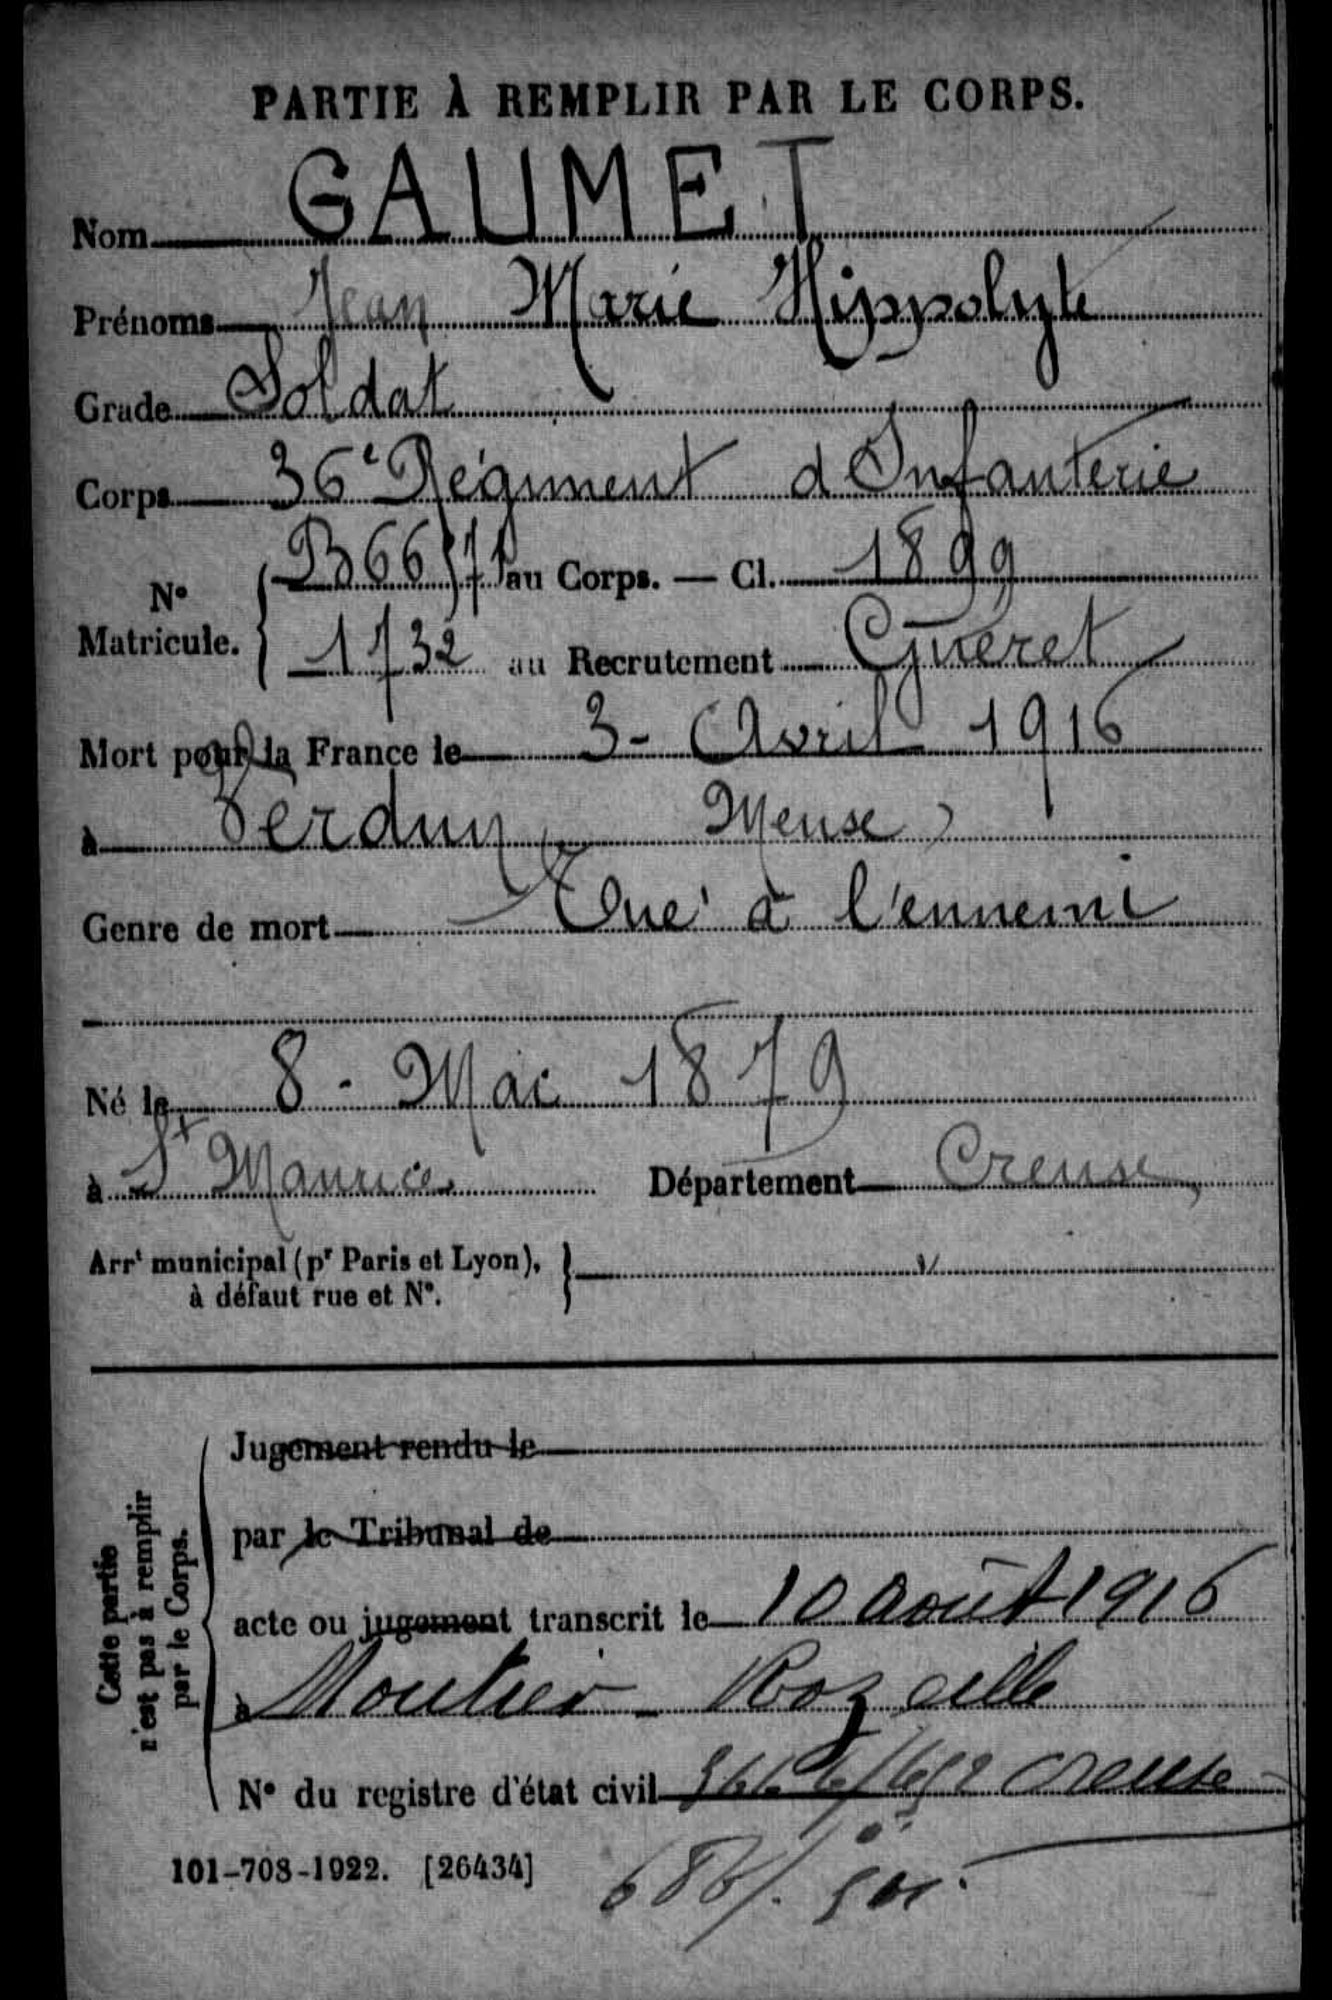 PARTIE À REMPLIR PAR LE CORPS.
Nom GAUMET
Prénoms Jean Marie Hippolyte
Grade Soldat
Corps 36e Régiment d'Infanterie
N° Matricule. au Corps. — Cl. 1899
1732 au Recrutement Guéret
Mort pour la France le 3 - Avril 1916
à Verdun Meuse
Genre de mort Tué à l'ennemi
Né le 8 - Mai 1879
à St Maurice Département Creuse
Arrt municipal (pr Paris et Lyon), à défaut rue et N°.
Cette partie n'est pas à remplir par le Corps.
Jugement rendu le
par le Tribunal de
acte ou jugement transcrit le 10 août 1916
à Moutier - Rozeille
N° du registre d'état civil Creuse
101-708-1922. [26434]